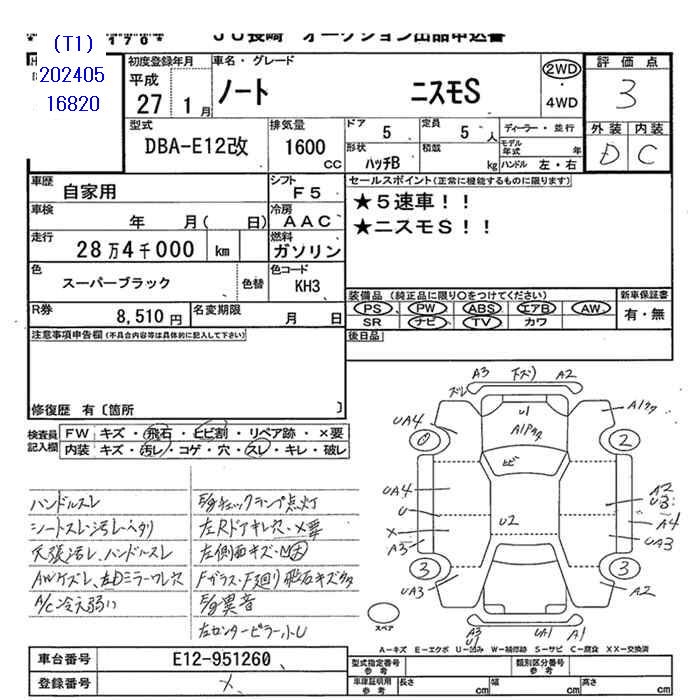 (T1)
202405
16820
170*
JU長崎 オークション出品申込書
初度登録年月
平成
27 1 月
車名・グレード
ノート ニスモS
2WD
・
4WD
評価点
3
外装 内装
D C
型式
DBA-E12改
排気量
1600
CC
ドア
5
定員
5 人
形状
ハッチB
積載
kg
ディーラー・並行
モデル
年式 年
ハンドル 左・右
車歴
自家用
シフト
F5
車検
年 月( 日)
冷房
AAC
走行
28万4千000 km
燃料
ガソリン
色
スーパーブラック
色替
色コード
KH3
R券
8,510 円
名変期限
月 日
セールスポイント(正常に機能するものに限ります)
★5速車!!
★ニスモS!!
装備品(純正品に限り○をつけてください)
PS PW ABS エアB AW
SR ナビ TV カワ
新車保証書
有・無
後日品
注意事項申告欄(不具合内容等は具体的に記入して下さい)
修復歴 有〔箇所 〕
検査員
記入欄
FW キズ・飛石・ヒビ割・リペア跡・×要
内装 キズ・汚レ・コゲ・穴・スレ・キレ・破レ
ハンドルスレ
シートスレ・汚レ・ヘタリ
天張汚レ、ハンドルスレ
AWケズレ、左Dミラーワレ穴
A/C冷え弱い
E/gチェックランプ点灯
左Rドアキレ穴・×要
左側面キズ・U大
Fガラス・F廻り飛石キズ多
E/g異音
左センターピラー小U
A3 下ズリ A2
ズレ
UA4
U1
A1タク
A1Pタク
0 2
ヒビ
UA4
U
U2
A2
A4
×
A3
UA3
3 3
UA3
A2
A3
U1
UA1 A1
スペア
A-キズ E-エクボ U-凹み W-補修跡 S-サビ C-腐食 XX-交換済
車台番号
E12-951260
登録番号
×
型式指定番号
参考
類別区分番号
参考
車庫証明用
参考
長さ
cm
幅
cm
高さ
cm